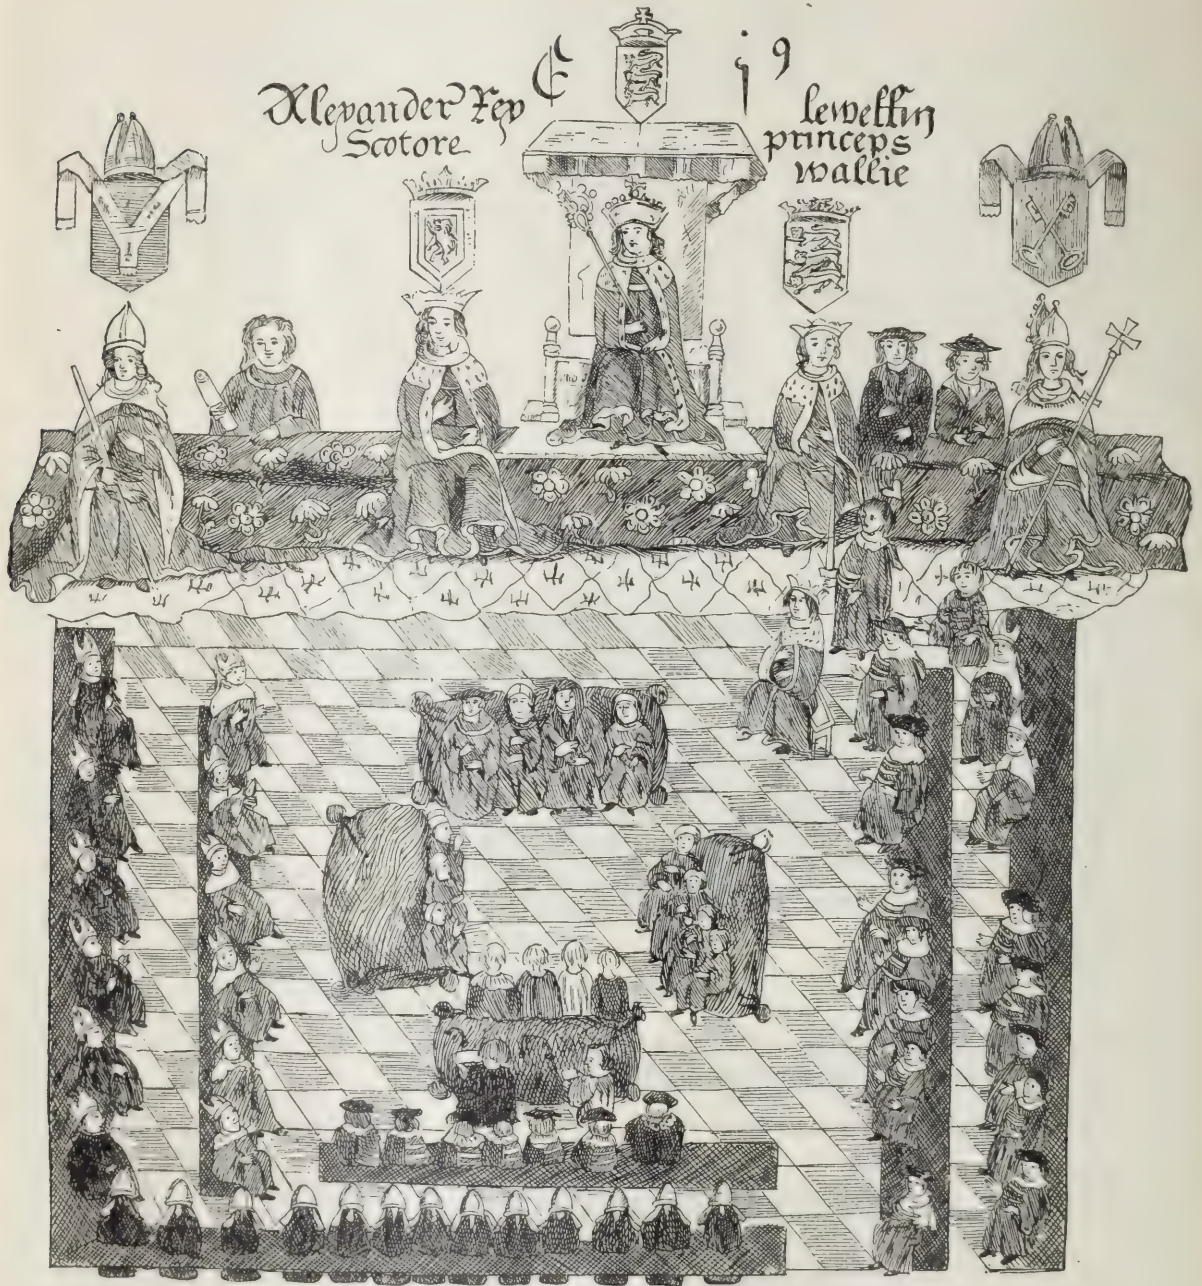 E i 9
Alexander Rex
Scotore
lewellin
princeps
wallie